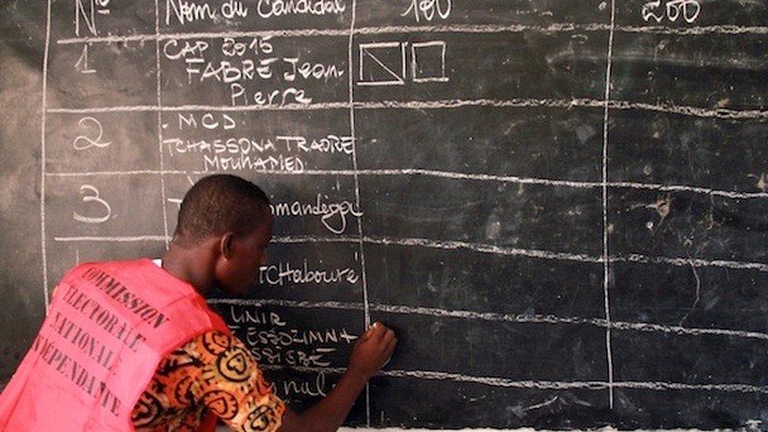 Nº Nom du Candidat 100 200
1 CAP 2015
FABRE Jean-
Pierre
2 MCD
TCHASSONA TRAORE
MOUHAMED
3
Tchabouré
UNIR
COMMISSION
ELECTORALE
NATIONALE
INDEPENDANTE